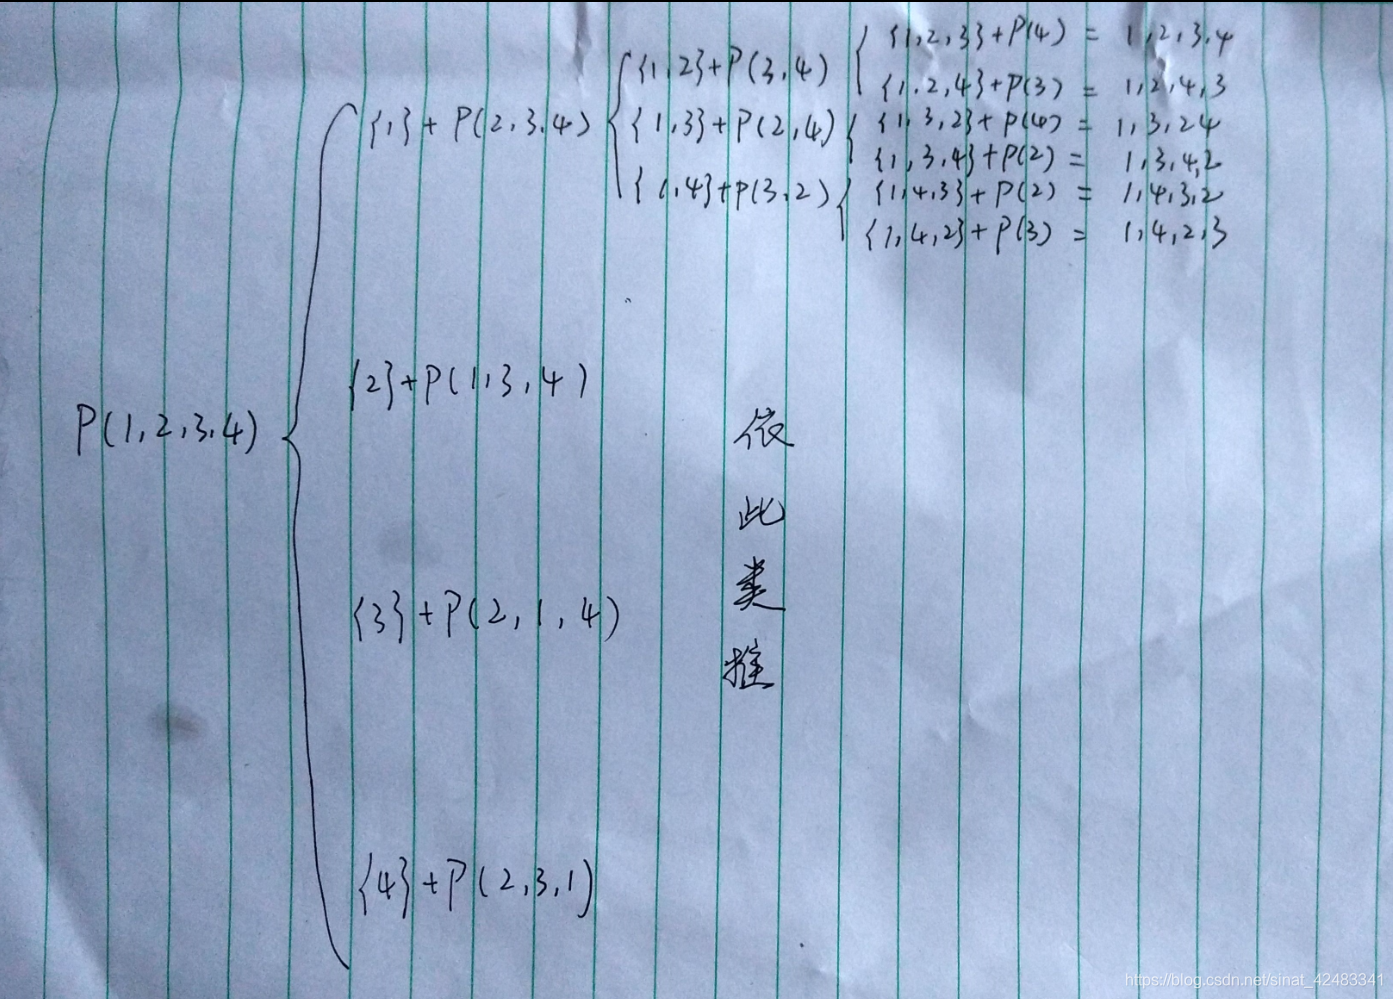 {1,2,3}+P(4) = 1,2,3,4
{1,2}+P(3,4)
{1,2,4}+P(3) = 1,2,4,3
{1}+P(2,3,4)
{1,3}+P(2,4)
{1,3,2}+P(4) = 1,3,24
{1,3,4}+P(2) = 1,3,4,2
{1,4}+P(3,2)
{1,4,3}+P(2) = 1,4,3,2
{1,4,2}+P(3) = 1,4,2,3
{2}+P(1,3,4)
P(1,2,3,4)
依
此
类
推
{3}+P(2,1,4)
{4}+P(2,3,1)
https://blog.csdn.net/sinat_42483341